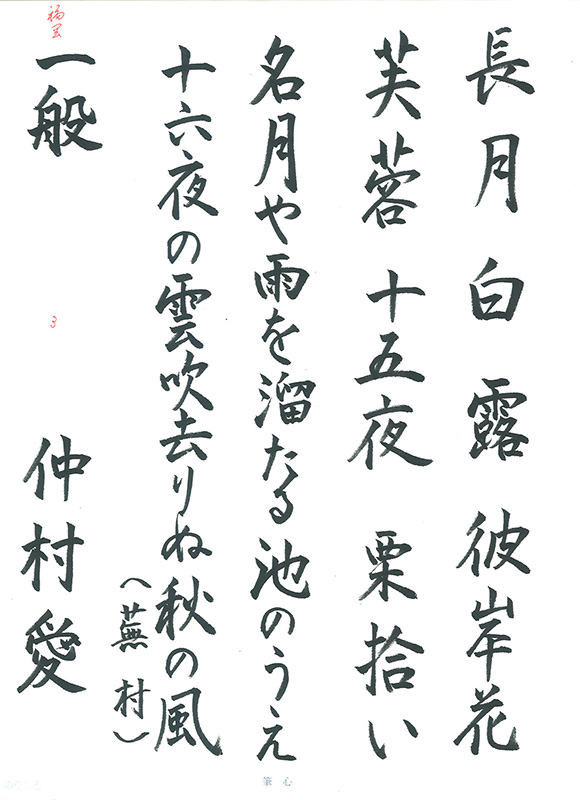 長月 白露 彼岸花
芙蓉 十五夜 栗拾い
名月や雨を溜たる池のうえ
十六夜の雲吹去りぬ秋の風
（蕪村）
一般 仲村愛
3
筆心